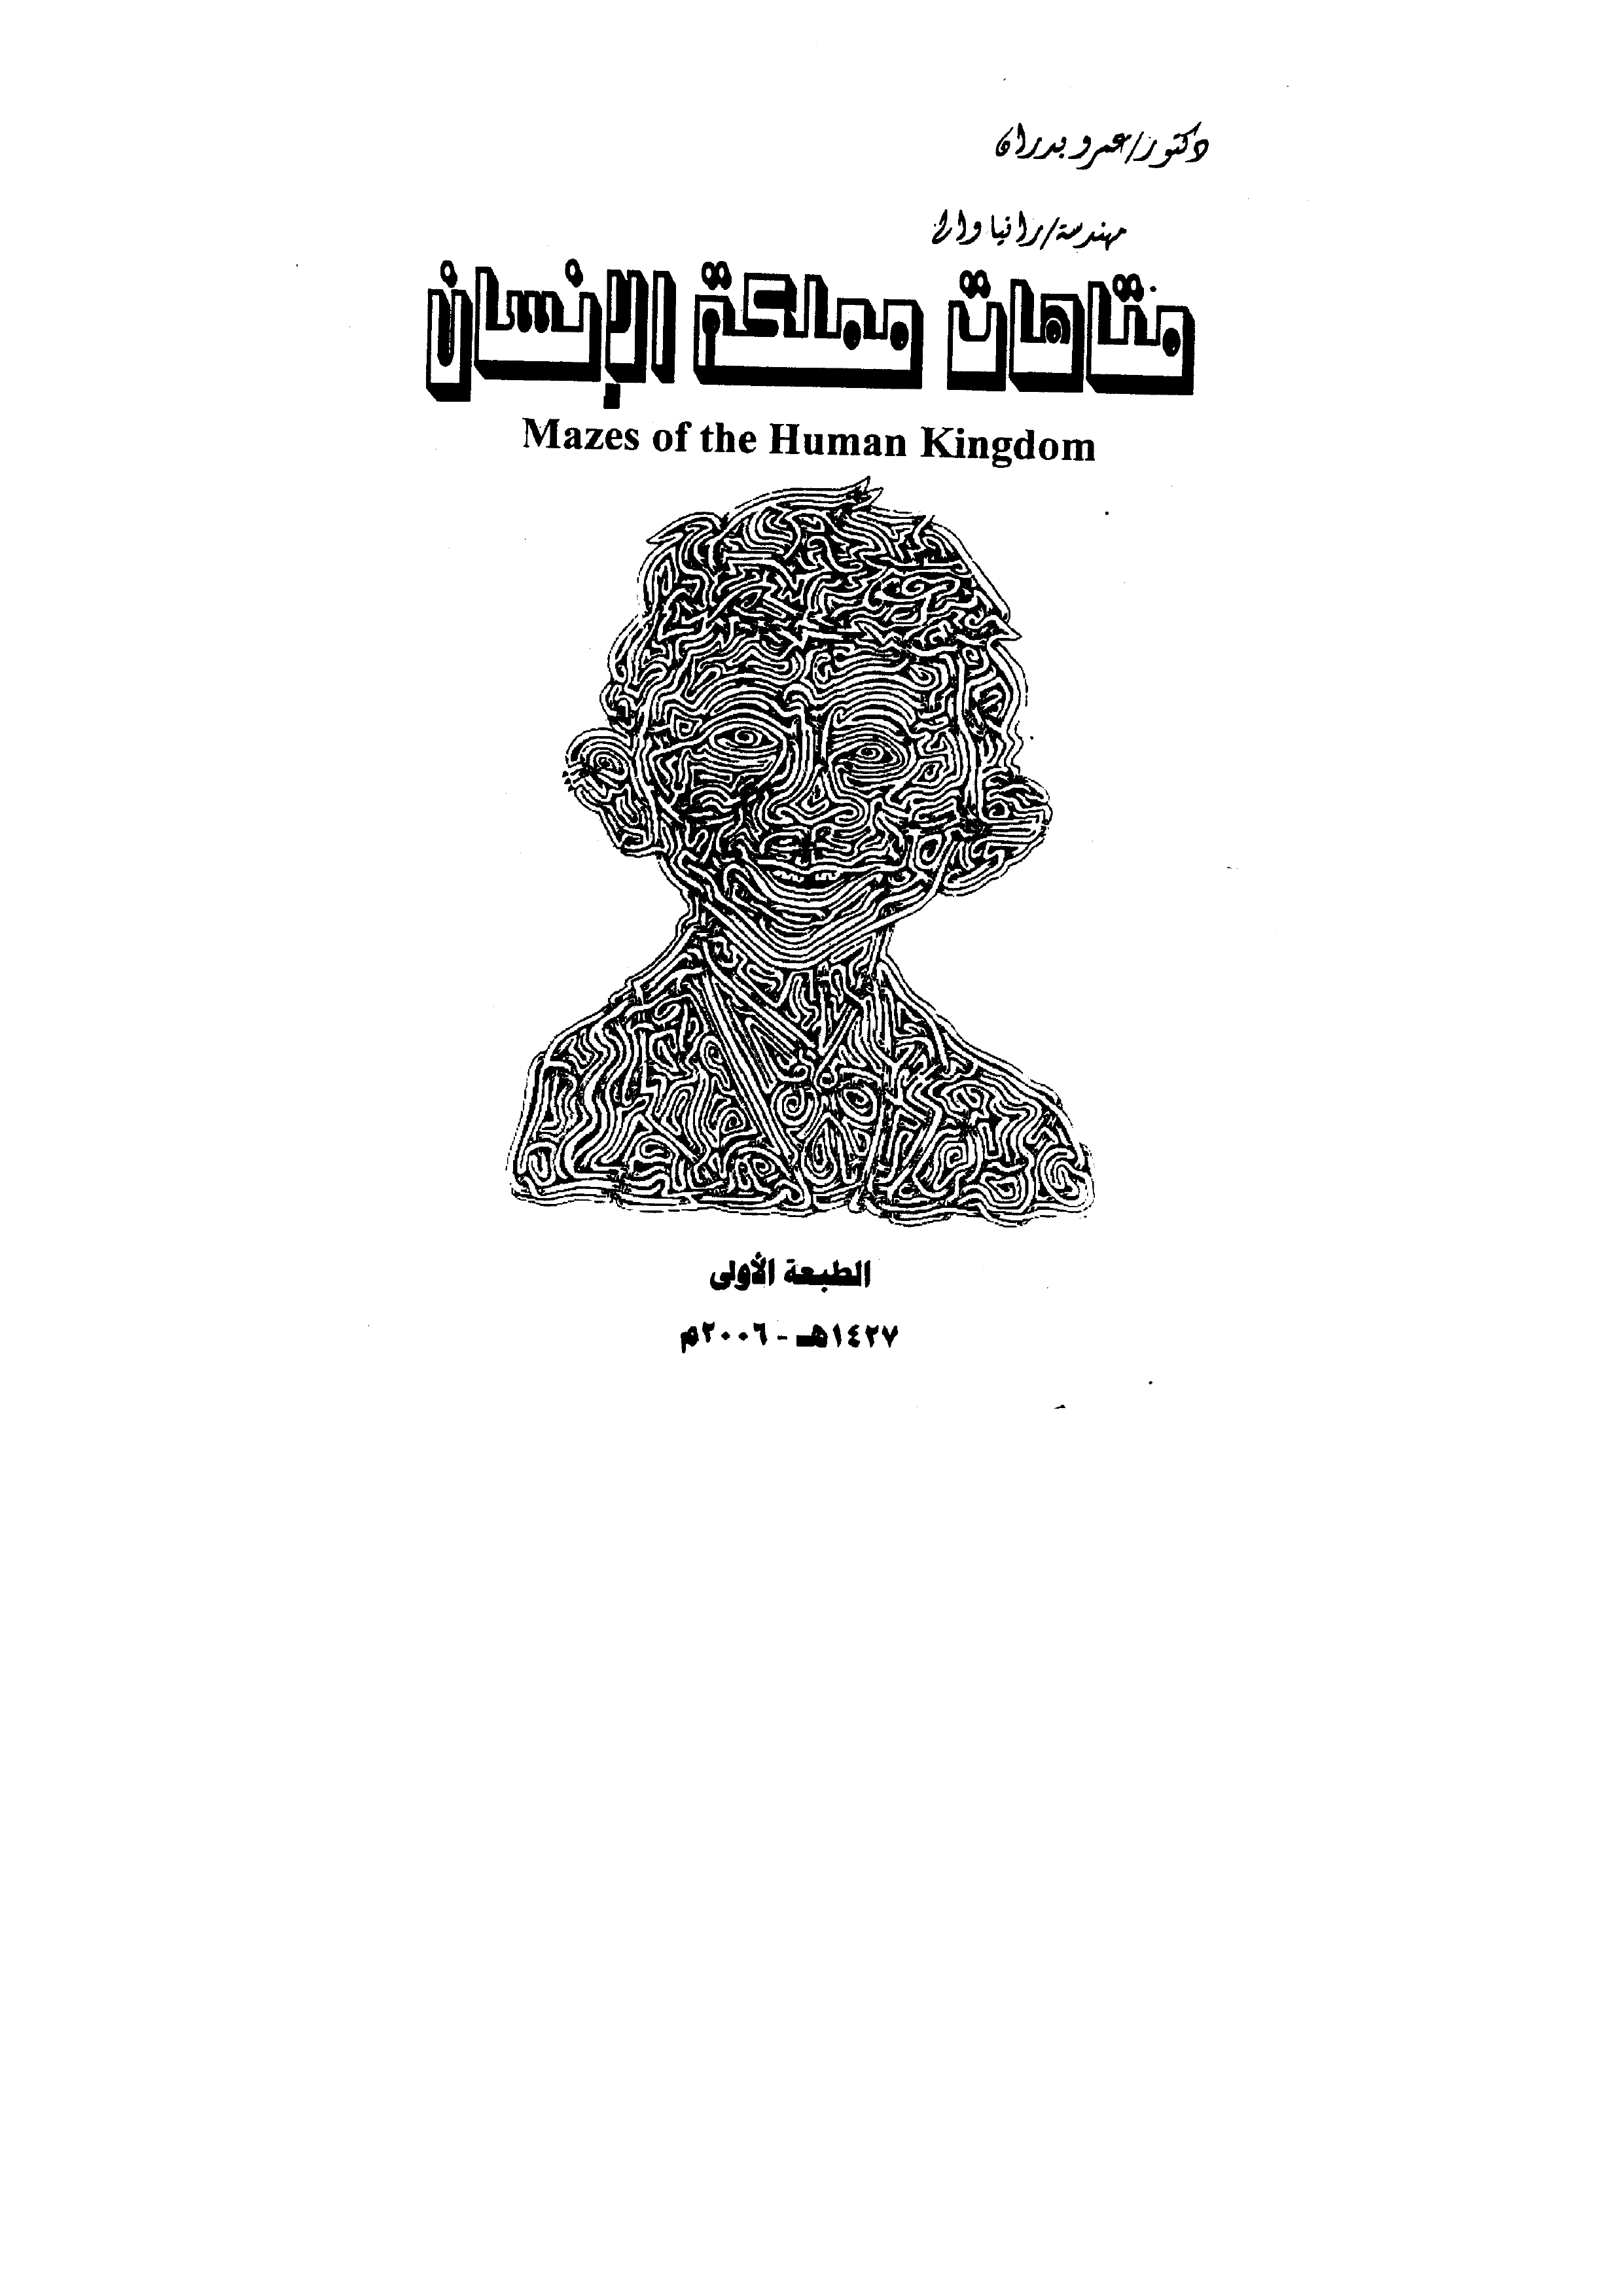 دكتور/عمرو بدران
مهندسة/رانيا وائل
متاهات مملكة الإنسان
Mazes of the Human Kingdom
الطبعة الأولى
١٤٢٧هـ - ٢٠٠٦م